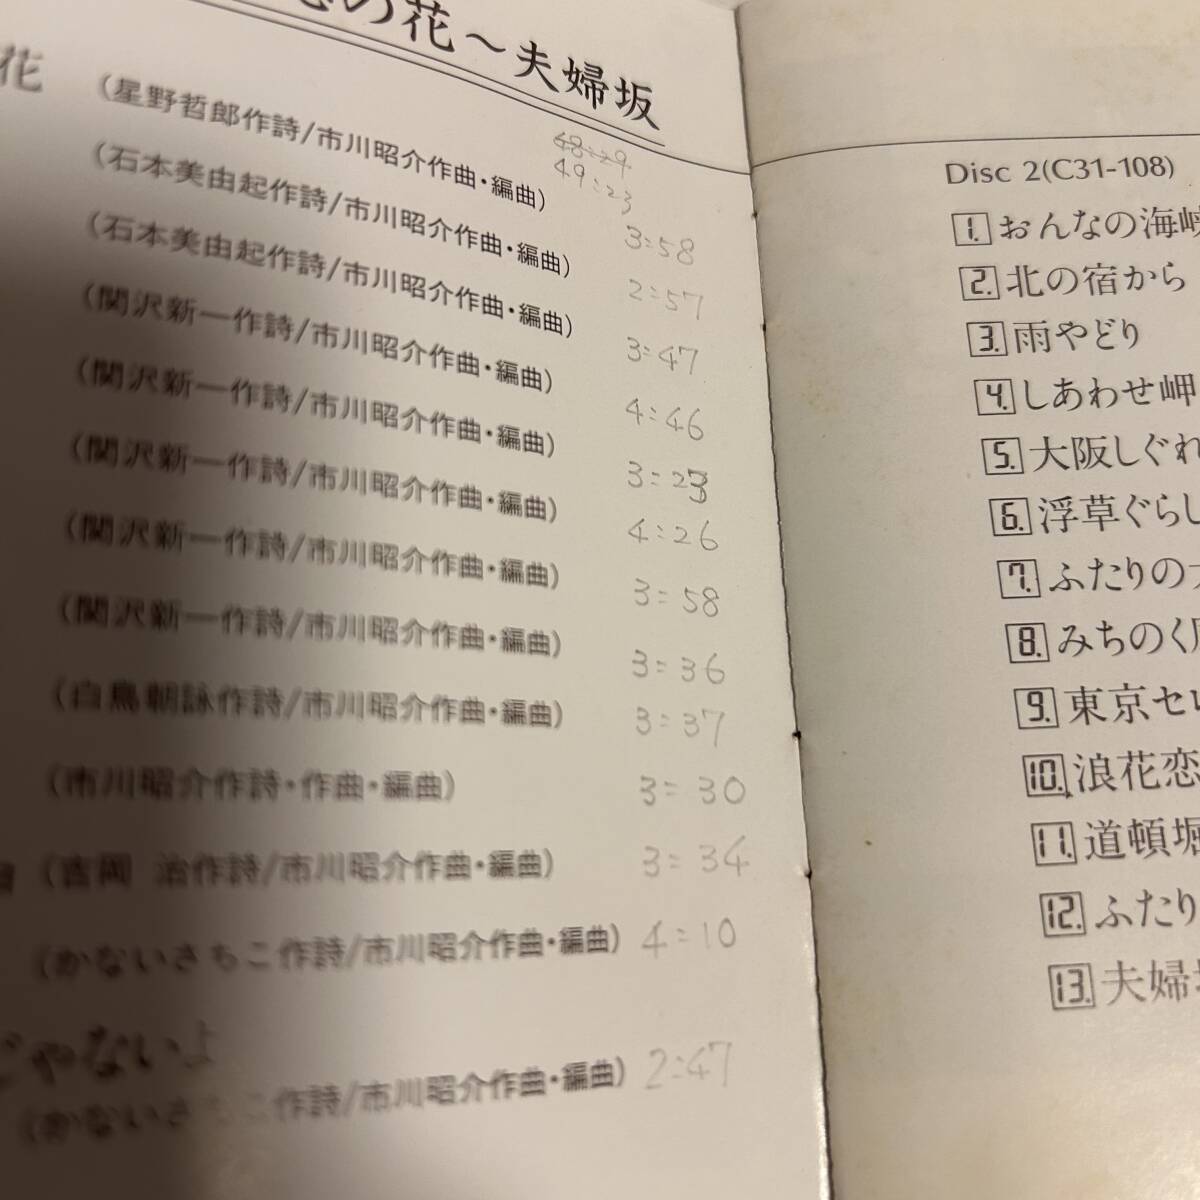 の花～夫婦坂
48:29
49:23
花 (星野哲郎作詩/市川昭介作曲・編曲) 3:58
(石本美由起作詩/市川昭介作曲・編曲) 2:57
(石本美由起作詩/市川昭介作曲・編曲) 3:47
(関沢新一作詩/市川昭介作曲・編曲) 4:46
(関沢新一作詩/市川昭介作曲・編曲) 3:23
(関沢新一作詩/市川昭介作曲・編曲) 4:26
(関沢新一作詩/市川昭介作曲・編曲) 3:58
(関沢新一作詩/市川昭介作曲・編曲) 3:36
(白鳥朝詠作詩/市川昭介作曲・編曲) 3:37
(市川昭介作詩・作曲・編曲) 3:30
(吉岡 治作詩/市川昭介作曲・編曲) 3:34
(かないさちこ作詩/市川昭介作曲・編曲) 4:10
じゃないよ
(かないさちこ作詩/市川昭介作曲・編曲) 2:47
Disc 2(C31-108)
1. おんなの海峡
2. 北の宿から
3. 雨やどり
4. しあわせ岬
5. 大阪しぐれ
6. 浮草ぐらし
7. ふたりの
8. みちのく
9. 東京セレ
10. 浪花恋
11. 道頓堀
12. ふたり
13. 夫婦坂